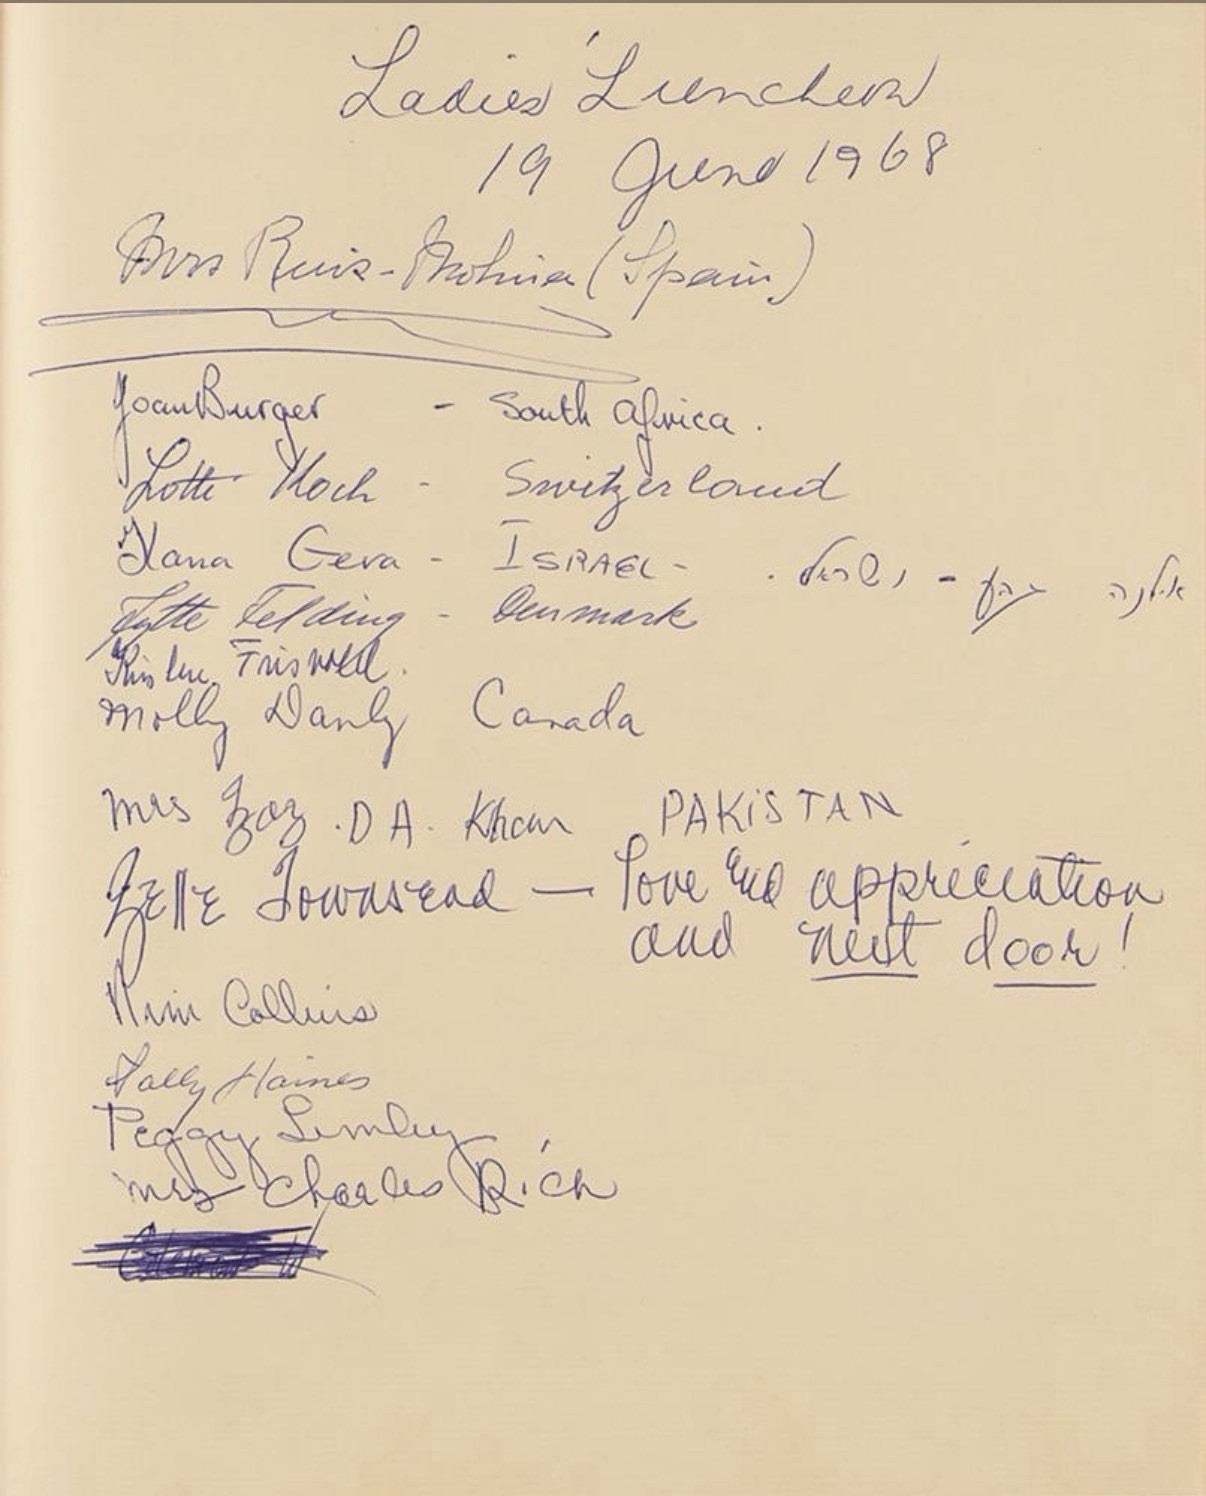 Ladies' Luncheon
19 June 1968
Mrs Ruiz-Molina (Spain)
Joan Burger - South Africa.
Lotti Koch - Switzerland
Ilana Geva - ISRAEL - אילנה גבע - ישראל.
Jytte Felding - Denmark
Molly Danly Canada
Mrs D A. Khan PAKISTAN
Zelle Townsend — Love and appreciation
and next door!
Collins
Sally Haines
Peggy
Mrs Charles Rich